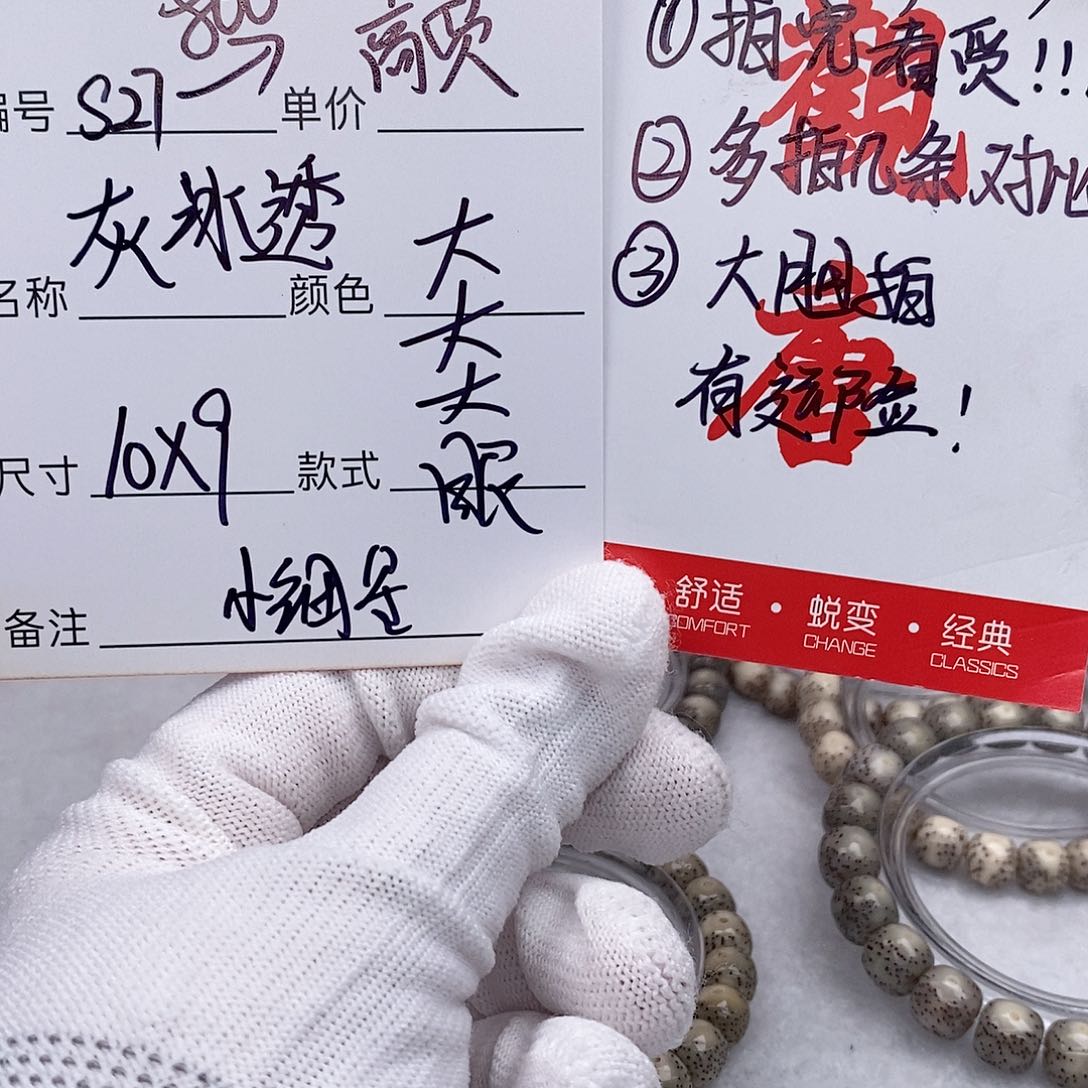 高贤
编号 S27 单价
灰冰透
大
名称 颜色
大
大
10X9
尺寸 款式
眼
小细星
备注
①拍完看贤!!!
②多拍几条对比
③大胆拍
有运险!
舒适·蜕变·经典
COMFORT CHANGE CLASSICS